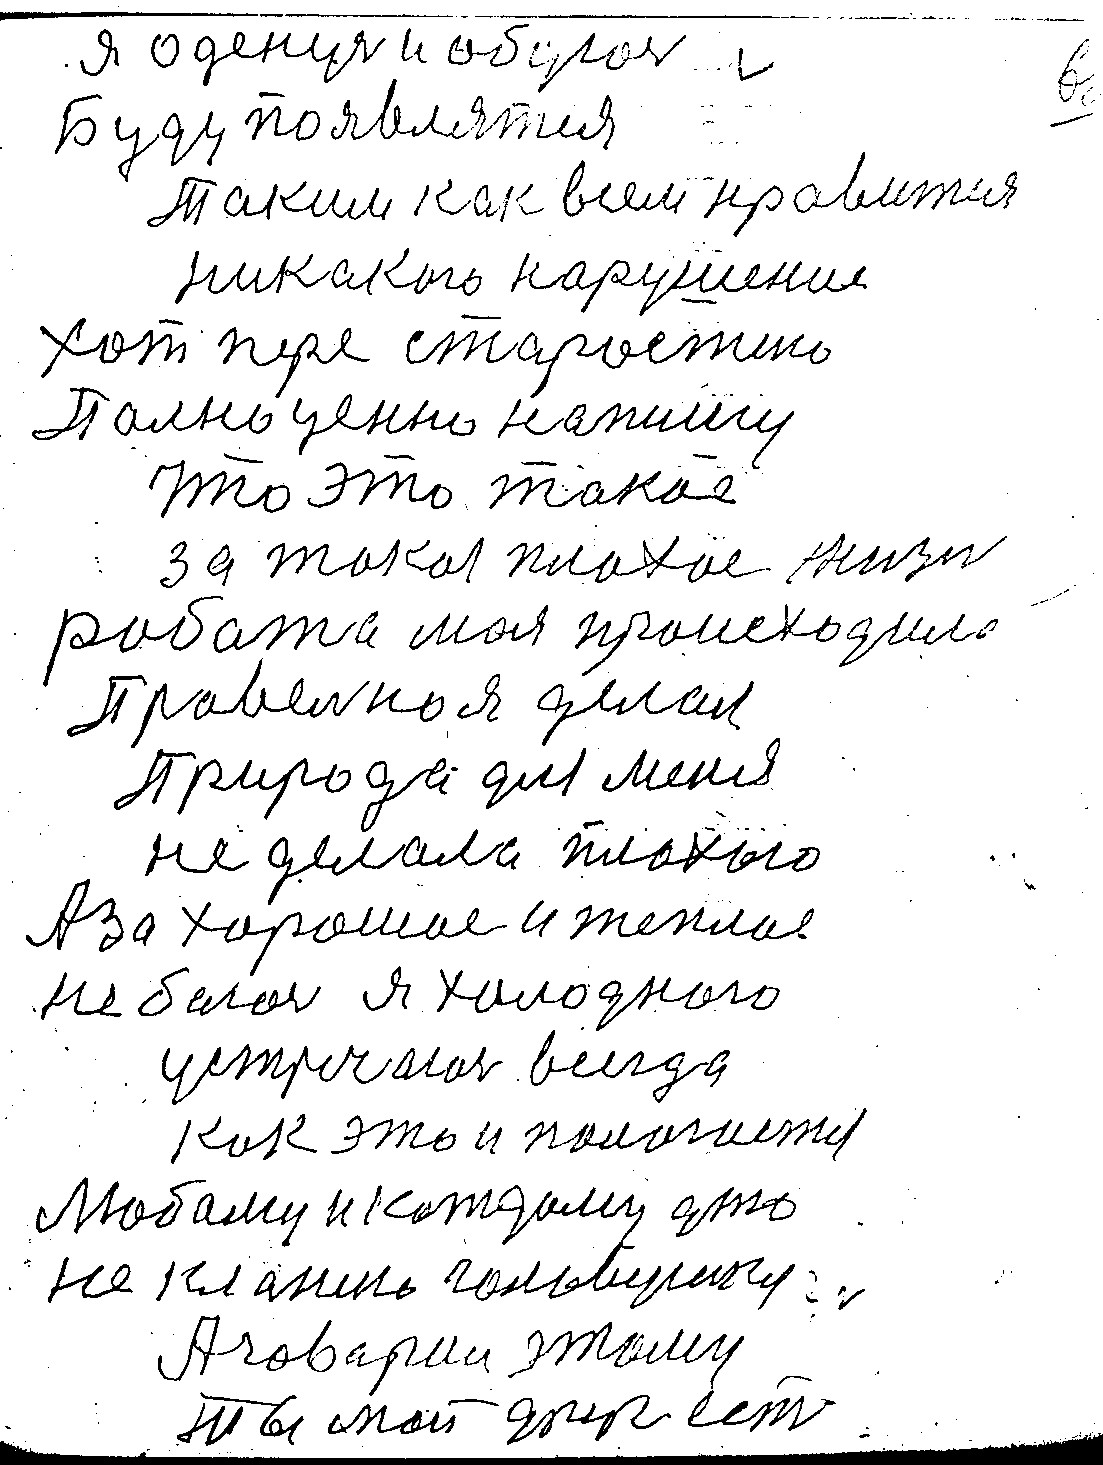 я оденуся и обуюся
Буду появлятся
Таким как всем нравится
никакого нарушение
хот пере
Полноценно напишу
что это такое
за такое плохое жизн
робата моя происходила
Правелно я делал
Природа для меня
не делала плохого
А за хорошое и теплое
не боюся я холодного
устречаюся всегда
как это и пологается
Любому и каждому
не кланюс головушку
А говарил этому
ты мой друг ест